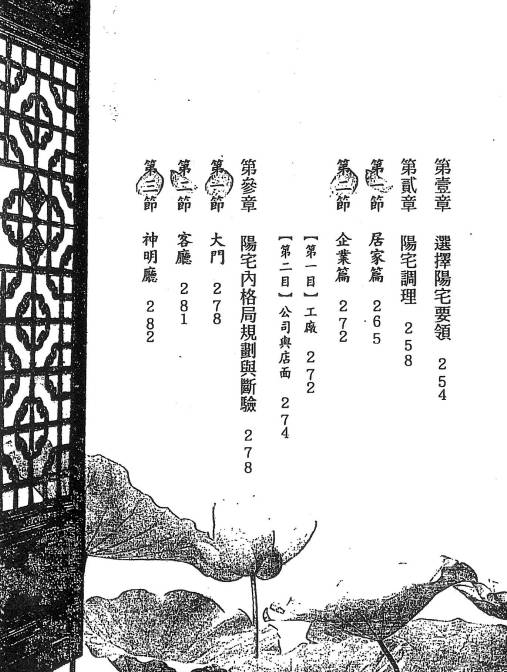 第壹章 選擇陽宅要領 254
第貳章 陽宅調理 258
第一節 居家篇 265
第二節 企業篇 272
【第一目】工廠 272
【第二目】公司與店面 274
第參章 陽宅內格局規劃與斷驗 278
第一節 大門 278
第二節 客廳 281
第三節 神明廳 282